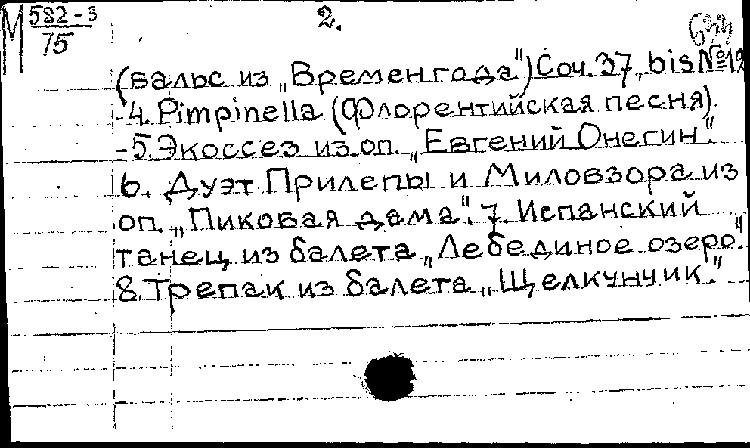 М 582-3
75
2.
(вальс из „Времен года") Соч. 37, bis №12
-4. Pimpinella (Флорентийская песня).
-5. Экоссез из оп. „Евгений Онегин".
6. Дуэт Прилепы и Миловзора из
оп. „Пиковая дама". 7. Испанский
танец из балета „Лебединое озеро".
8. Трепак из балета „Щелкунчик".